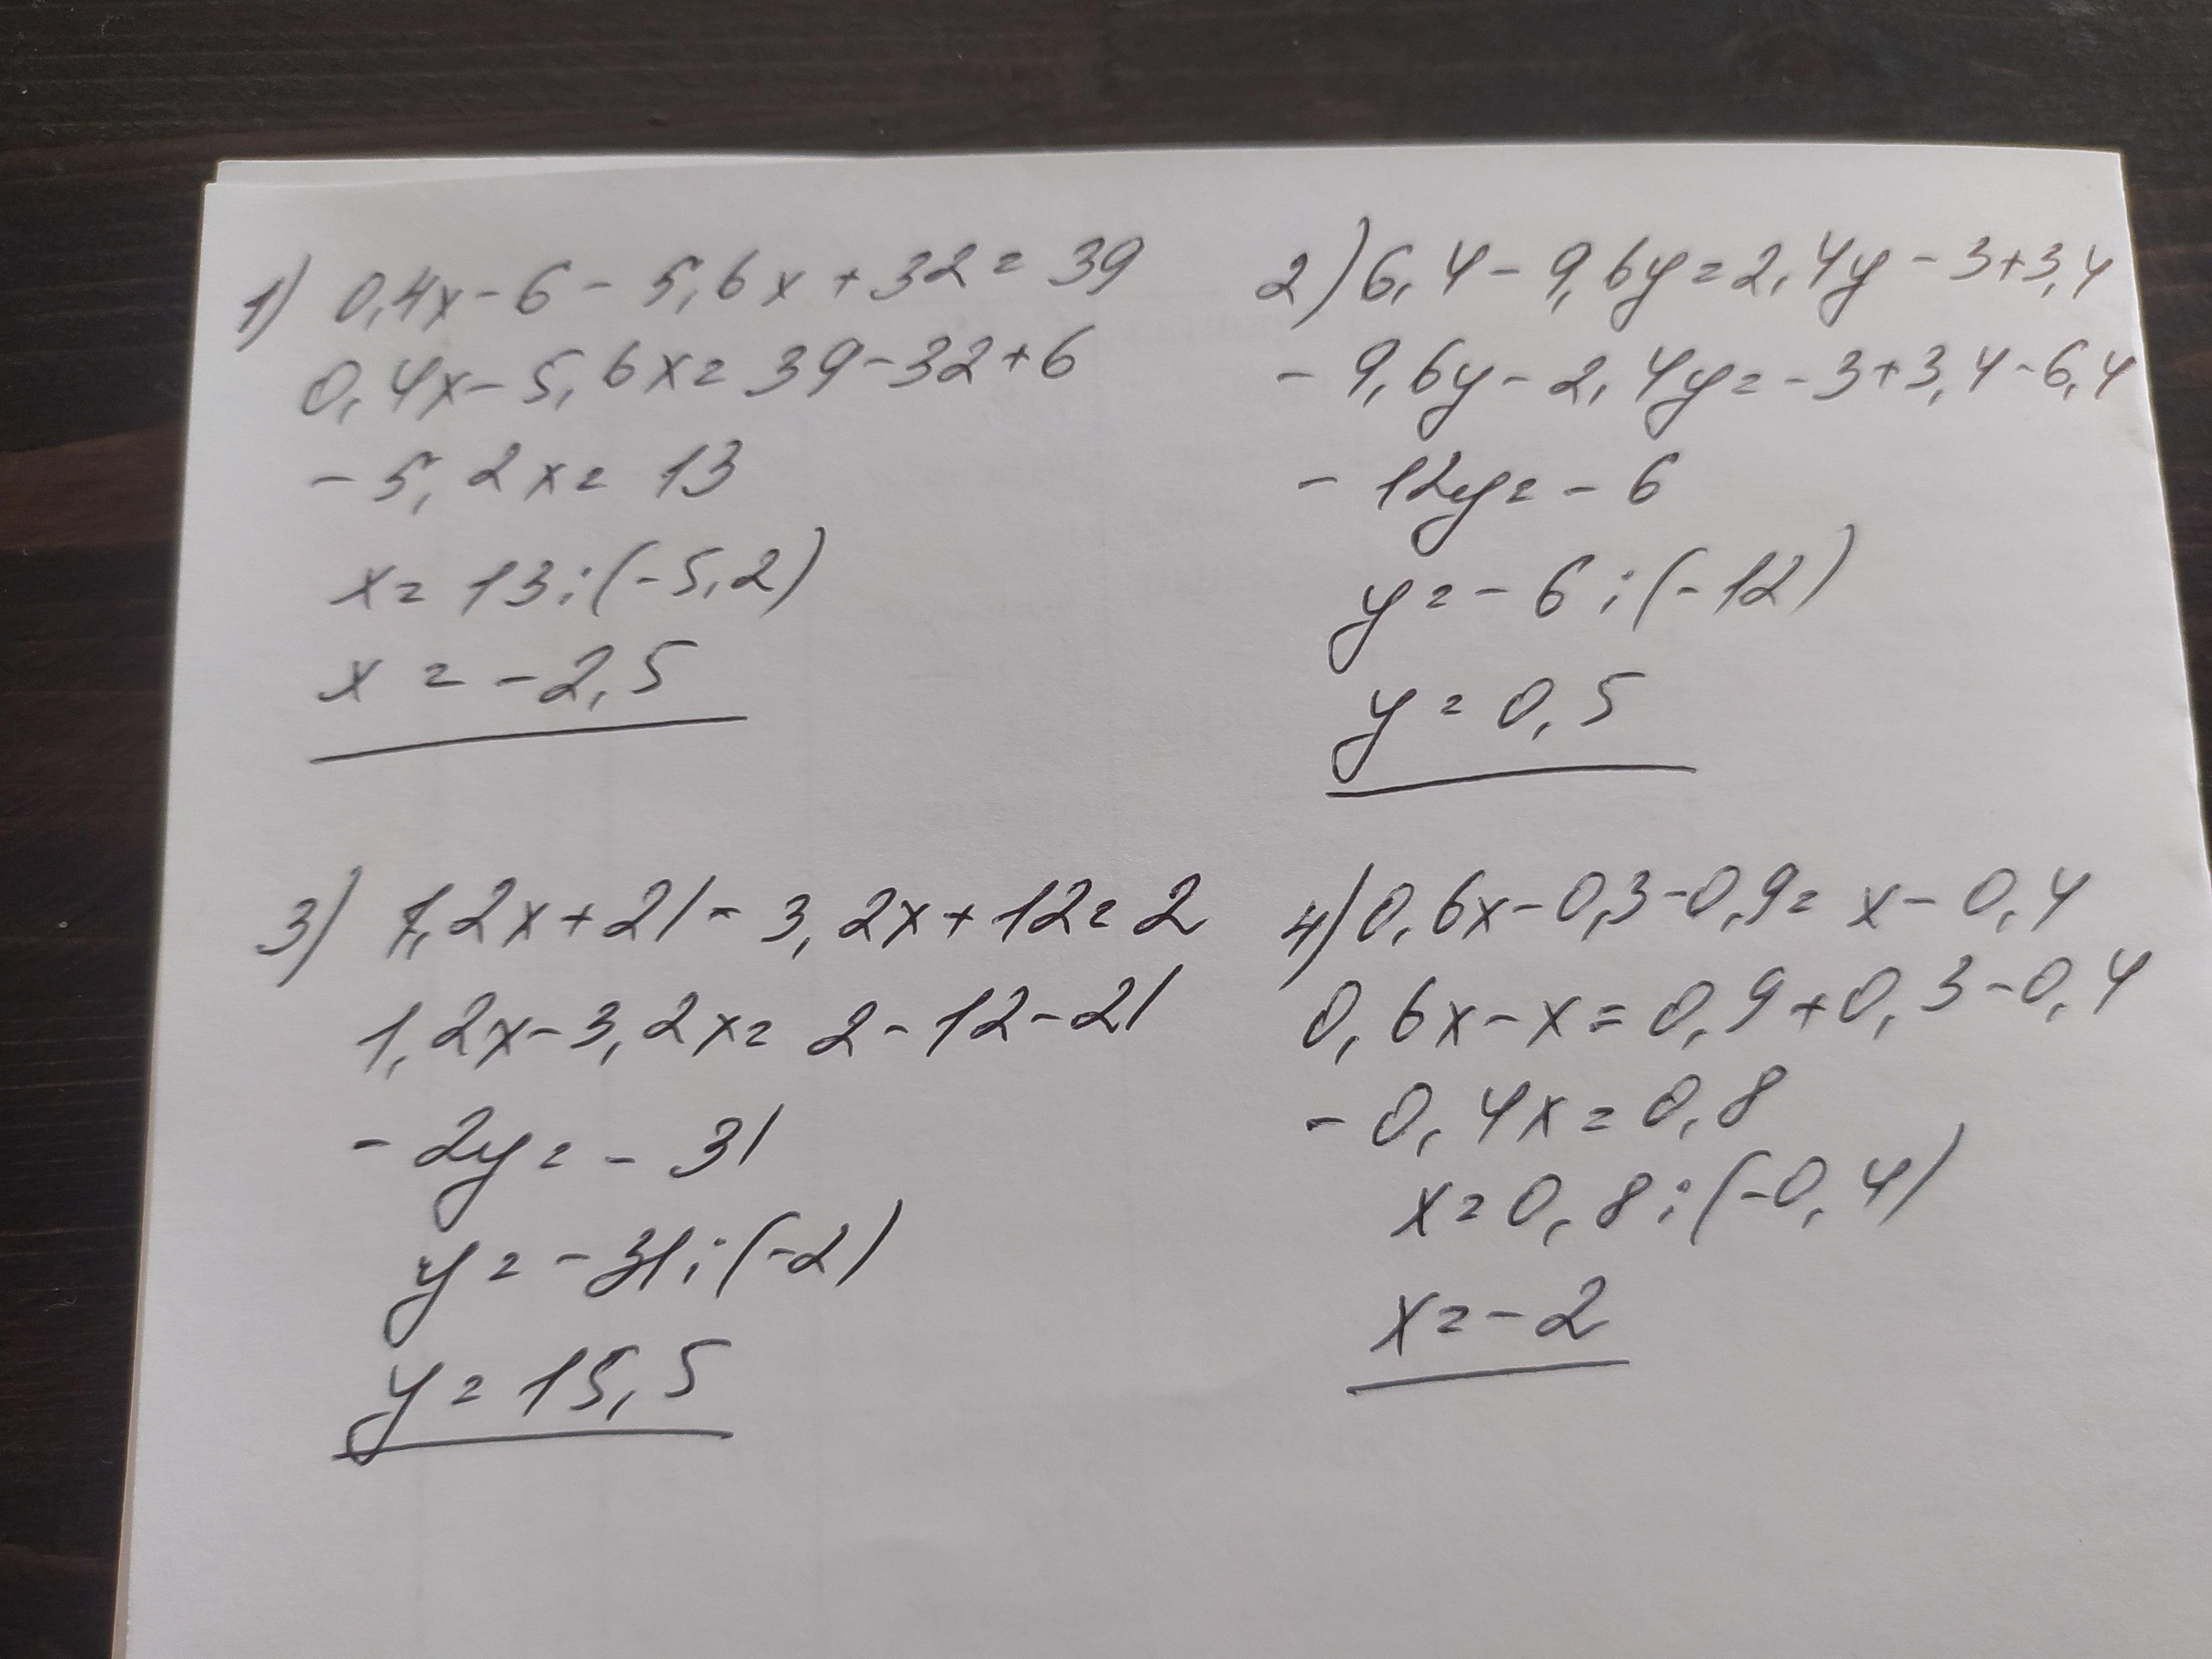 1) 0,4x-6-5,6x+32=39
0,4x-5,6x=39-32+6
-5,2x=13
x=13:(-5,2)
x=-2,5
2) 6,4-9,6y=2,4y-3+3,4
-9,6y-2,4y=-3+3,4-6,4
-12y=-6
y=-6:(-12)
y=0,5
3) 1,2x+21-3,2x+12=2
1,2x-3,2x=2-12-21
-2y=-31
y=-31:(-2)
y=15,5
4) 0,6x-0,3-0,9=x-0,4
0,6x-x=0,9+0,3-0,4
-0,4x=0,8
x=0,8:(-0,4)
x=-2